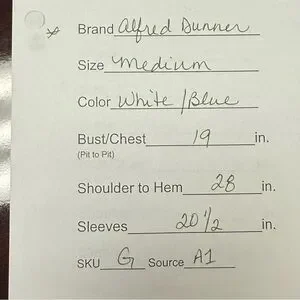 Brand Alfred Dunner
Size Medium
Color White / Blue
Bust/Chest 19 in.
(Pit to Pit)
Shoulder to Hem 28 in.
Sleeves 20 1/2 in.
SKU G Source A1